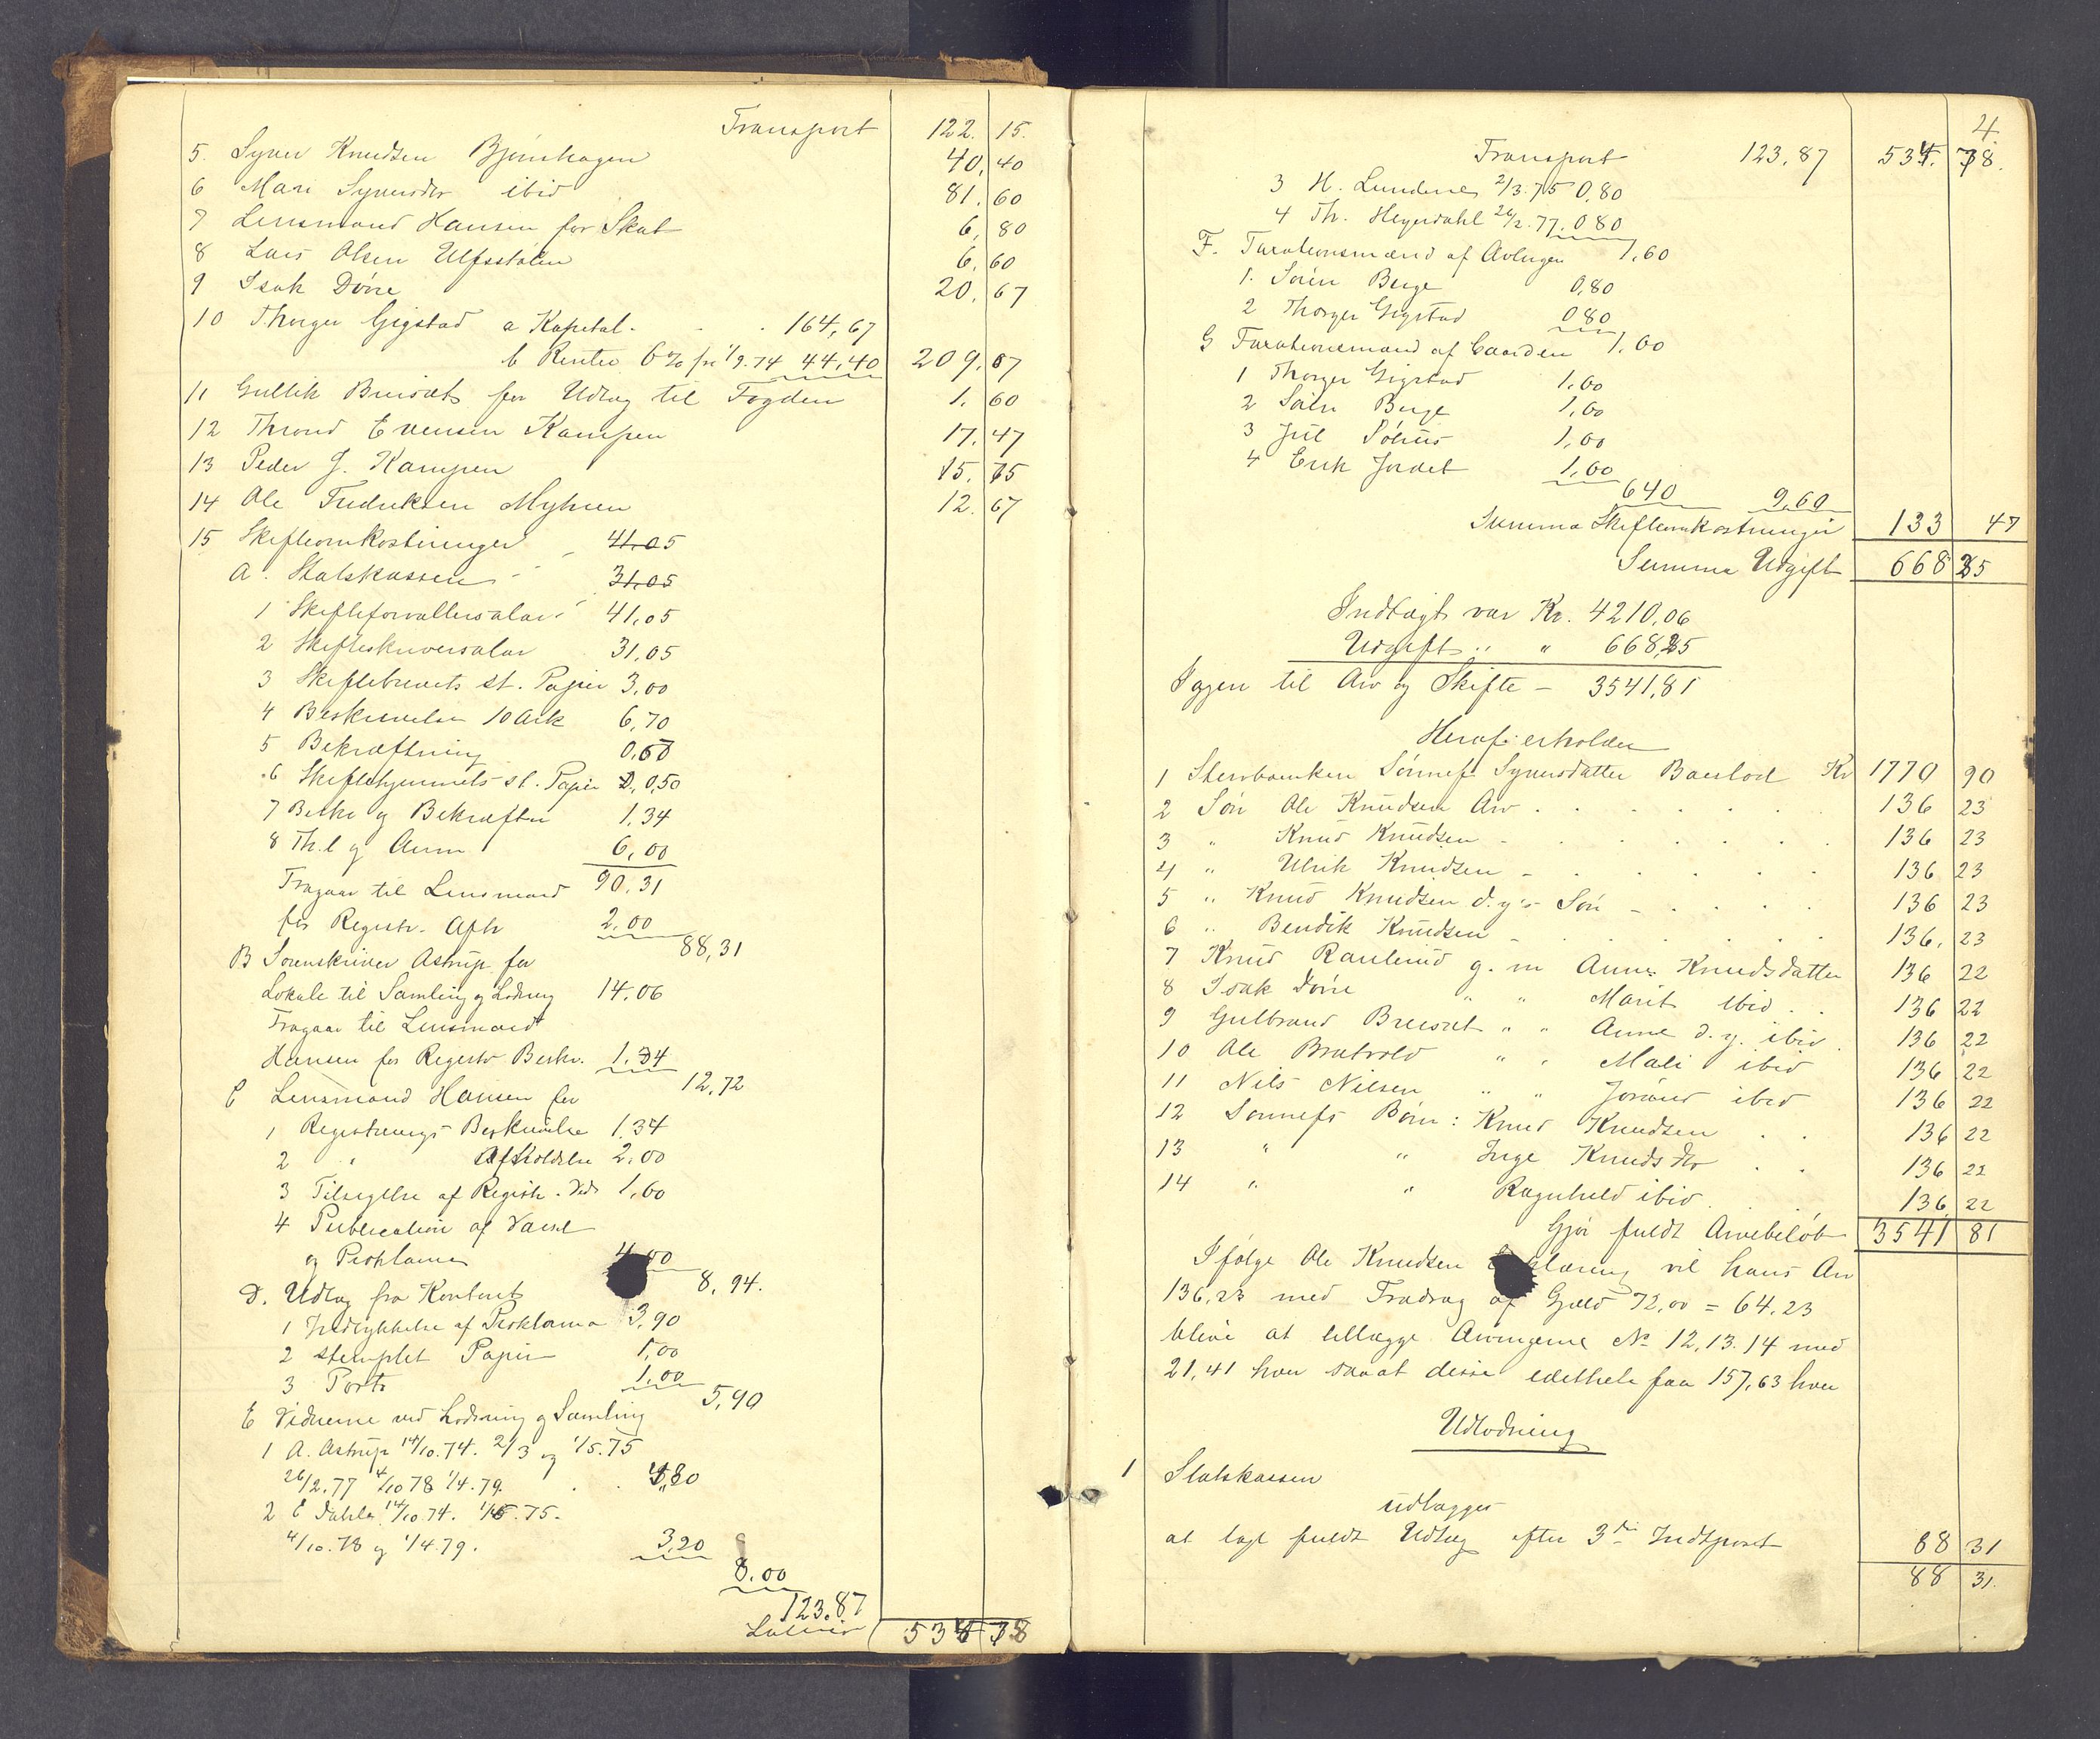 Transport 122. 15.
5. Syver Knudsen Bjørnhagen 40, 40
6 Mari Syversdtr ibid 81. 60
7 Lensmand Hansen for Skat 6, 80
8 Lars Olsen Ulfsstolen 6. 60
9 Isak Dørre 20, 67
10 Thorger Gigstad a Kapital. . . 164,67
b Renter 6% fra 1/9.74 44,40 209, 07
11 Gullik Bruisæt for Udlæg til Fogden 1. 60
12 Thrond Evensen Kampen 17. 47
13 Peder J. Kampen 15. 75
14 Ole Fredriksen Myhren 12. 67
15 Skifteomkostninger 41.05
A. Statskassen 31.05
1 Skifteforvaltersalar 41,05
2 Skifteskriversalar 31,05
3 Skiftebrevets st. Papir 3,00
4 Beskrivelse 10 Ark 6,70
5 Bekræftning 0,67
6 Skiftehjemmels st. Papir 0,50
7 Beskr og Bekræfter 1.34
8 Th.l og Anm 6,00
90.31
Fragaar til Lensmand
for Registr. Afh 2.00
88,31
B Sorenskriver Astrup for
Lokale til Samling og Lodning 14.06
Fragaar til Lensmand
Hansen for Registr Beskr. 1.34
12,72
C Lensmand Hansen for
1 Registrerings Beskrivelse 1.34
2 " Afholdelse 2.00
3 Tilsigelse af Registr. Vidr 1.60
4 Publication af Varsel
og Proklama 4,00
8,94.
D. Udlæg fra Kontoret
1 Indrykkelse af Proklama 3,90
2 stemplet Papir 1,00
3 Porto 1,00
5,90
E Vidnerne ved Lodning og Samling
1 A. Astrup 14/10.74. 2/3 og 1/5.75
26/2.77 4/10 78 1/4.79. . . 4,80
2 E Dahle 14/10.74. 1/5.75.
4/10.78 og 1/4.79. 3,20
8.00
123.87
Lateris 534 78
4.
Transport 123,87 534. 78.
3 H. Lundene 2/3.75 0,80
4 Th. Heyerdahl 26/2.77. 0 80
1,60
F. Taxationsmænd af Avlingen
1. Søren Berge 0,80
2 Thorger Gigstad 0 80
1.60
G Taxationsmænd af Gaarden
1 Thorger Gigstad 1,60
2 Søren Berge 1,60
3 Jul Sølius 1,60
4 Erik Jordet 1,60
6 40 9,60
Summa Skifteomkostninger 133 47
Summa Udgift 668 25
Indtægt var Kr. 4210,06
Udgift " " 668,25
Igjen til Arv og Skifte – 3541,81
Heraf erholder
1 Stervboenken Sønnef Syversdatter Boeslod Kr 1770 90
2 Søn Ole Knudsen Arv . . . . . 136 23
3 " Knud Knudsen – . . . . . 136 23
4 " Ulrik Knudsen – . . . . . 136 23
5 " Knud Knudsen d.y's Søn – . . . . 136 23
6 " Bendik Knudsen – . . . . . 136, 23
7 Knud Ranlund g. m Anne Knudsdatter 136 22
8 Isak Dørre " " Marit ibid . . 136 22
9 Gulbrand Bruisæt " " Anne d.y. ibid . 136 22
10 Ole Bratvold " " Mali ibid 136 22
11 Nils Nilsen " " Jørand ibid 136 22
12 Sønnefs Børn: Knud Knudsen . . 136 22
13 " " Inge Knudsdtr . . 136 22
14 " " Ragnhild ibid . . 136 22
Gjør fuldt Arvebeløb 3541 81
Ifølge Ole Knudsen Erklæring vil hans Arv
136,23 med Fradrag af Gjæld 72,00 = 64,23
blive at tillægge Arvingerne No 12.13.14 med
21,41 hver saaat disse isteden faa 157,63 hver
Udlodning
1 Statskassen
udlægges
at tage fuldt Udlæg efter 3die Indtpost 88 31
88 31.